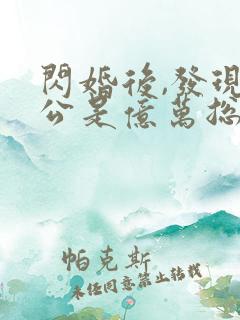 閃婚後,發現
公是億萬總
帕克斯
未經同意禁止轉載